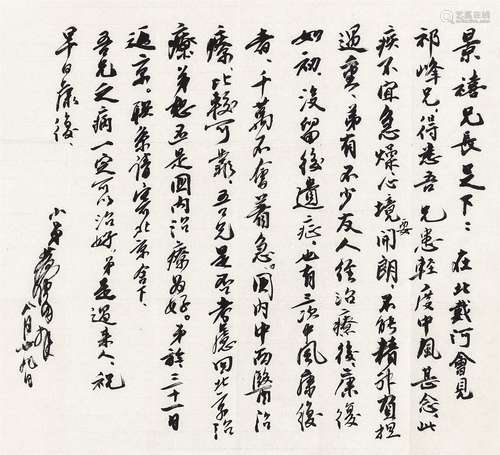 景禧兄長足下：在北戴河會見
祁峰兄，得悉吾兄患輕度中風甚念，此
疾不宜急燥，心境要開朗，不能精神負担
過重，弟有不少友人經治療後，康復
如初，没留後遺症，也有三次中風康復
者，千萬不會着急。國内中西醫治
療，比較可靠，吾兄是否考慮回北京治
療，弟想還是國内治療為好。弟於三十一日
返京。聯系請寄北京舍下，
吾兄之病一定可以治好，弟是過来人，祝
早日康復，
小弟
八月廿九日